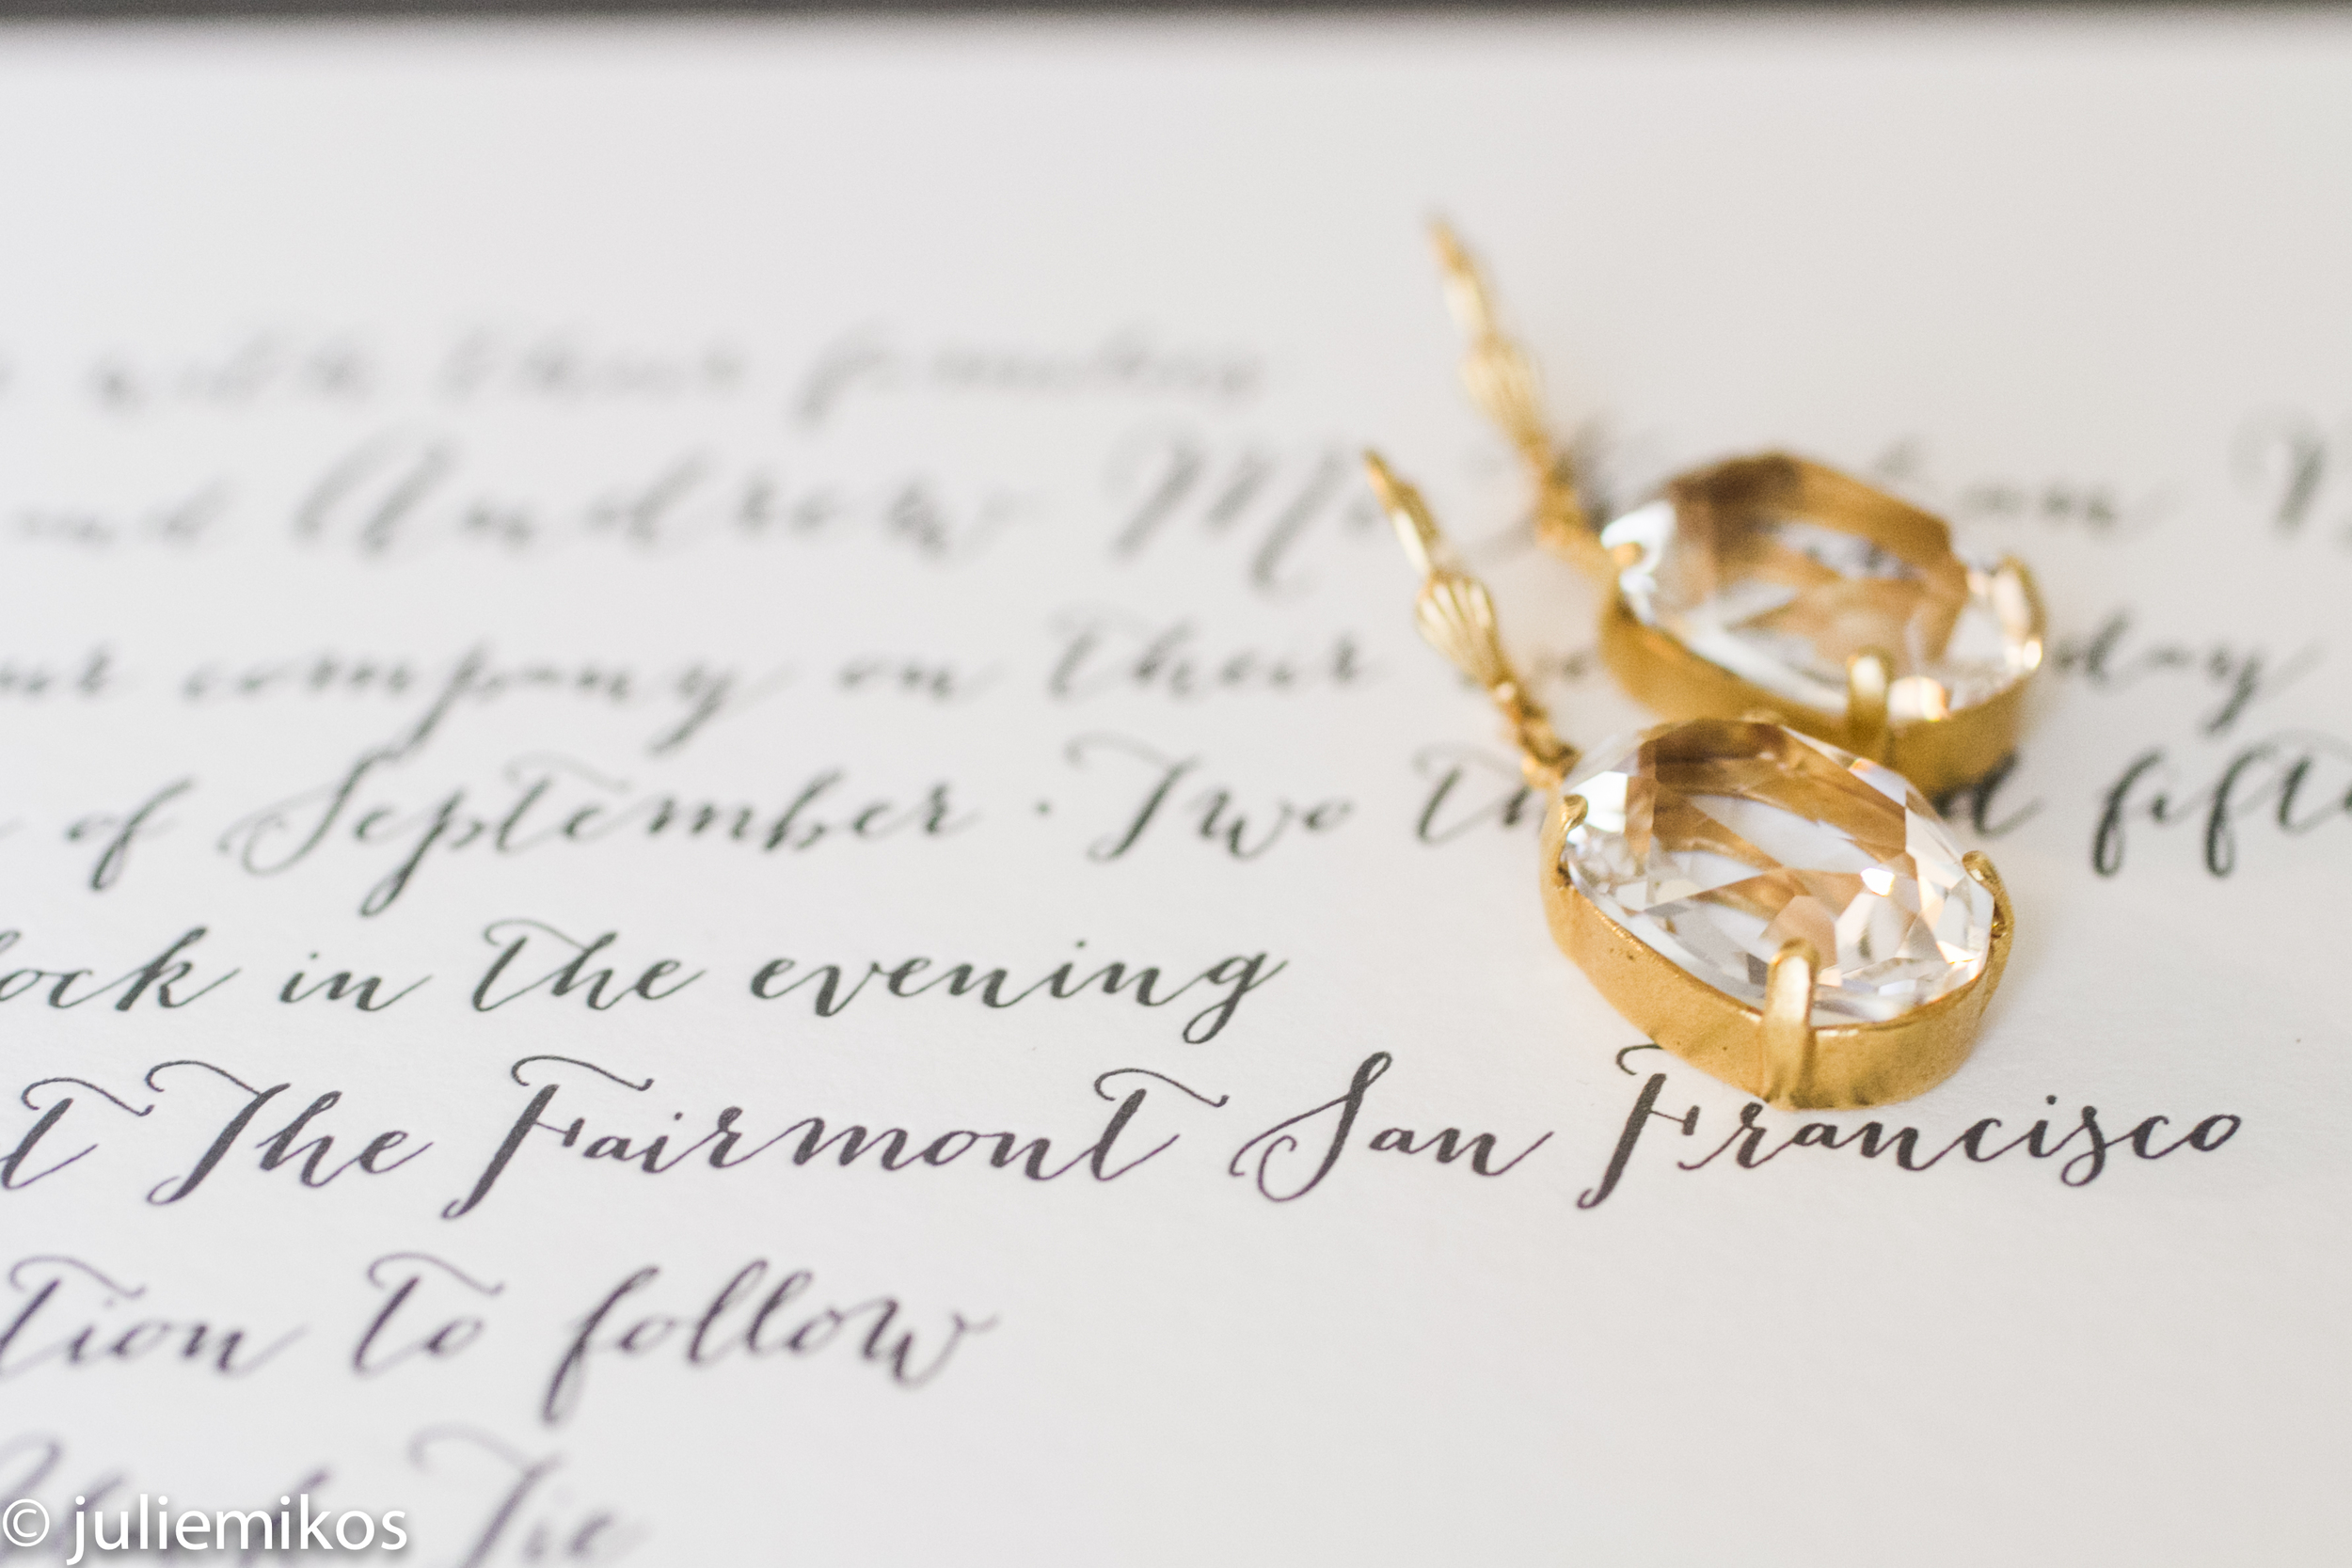 with their families
Andrew
company on their day
of September · Two fift
lock in the evening
t The Fairmont San Francisco
tion to follow
Tie
© juliemikos